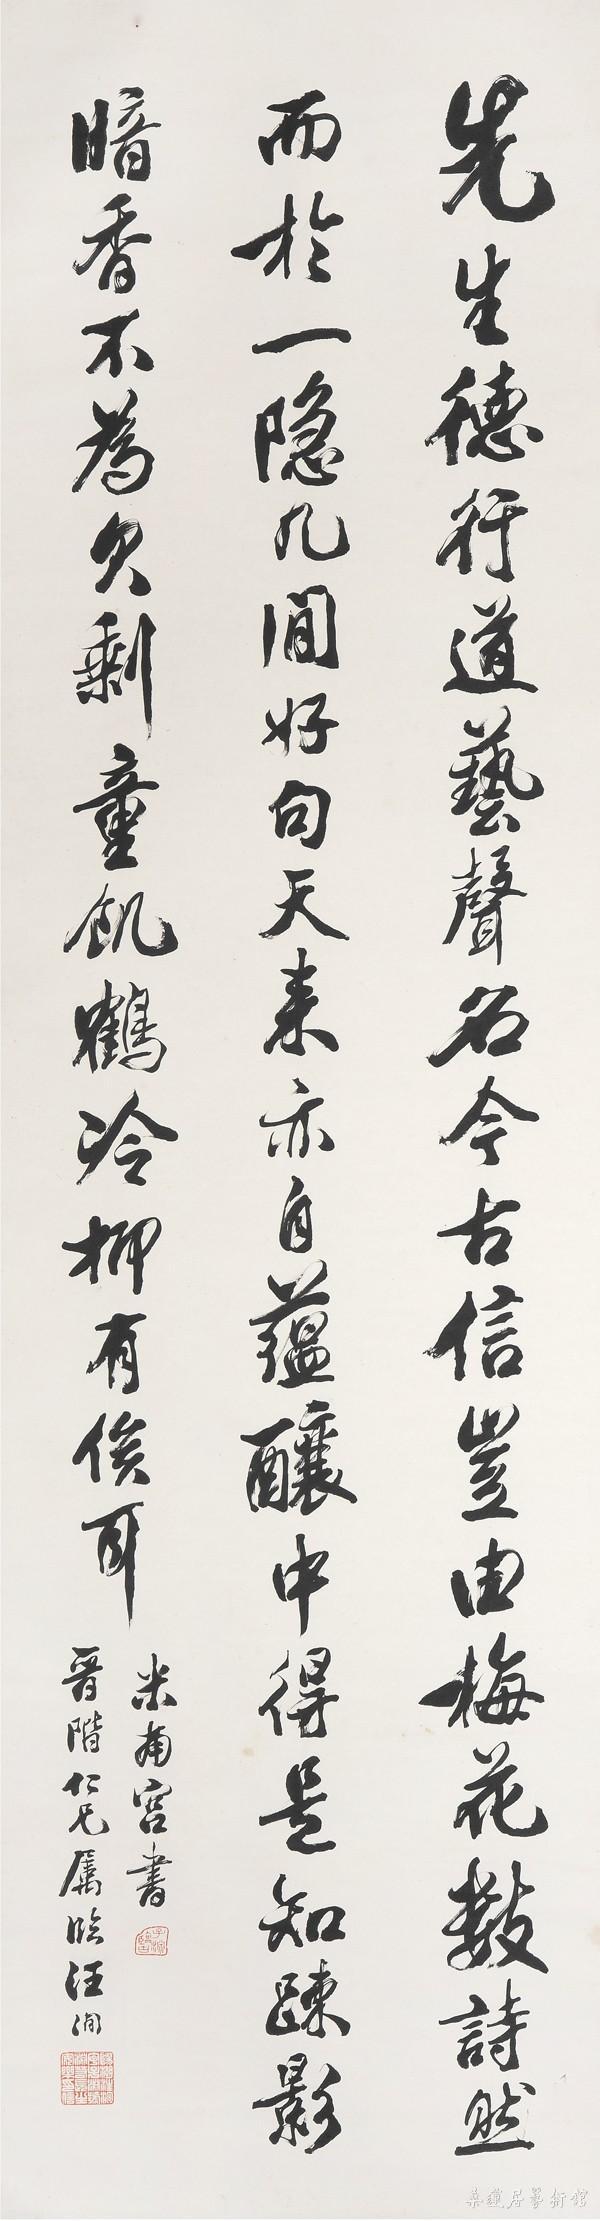 先生德行道藝聲名今古信豈由梅花數詩然
而於一隐几間好句天来亦自蕴釀中得是知踈影
暗香不為欠剩童飢鶴冷抑有俟耳
米南宫書
晋階仁兄属臨汪洵
桑蓮居藝術館